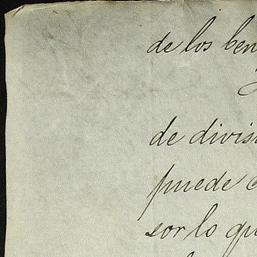 de los ben
de divis
puede
sor lo qu